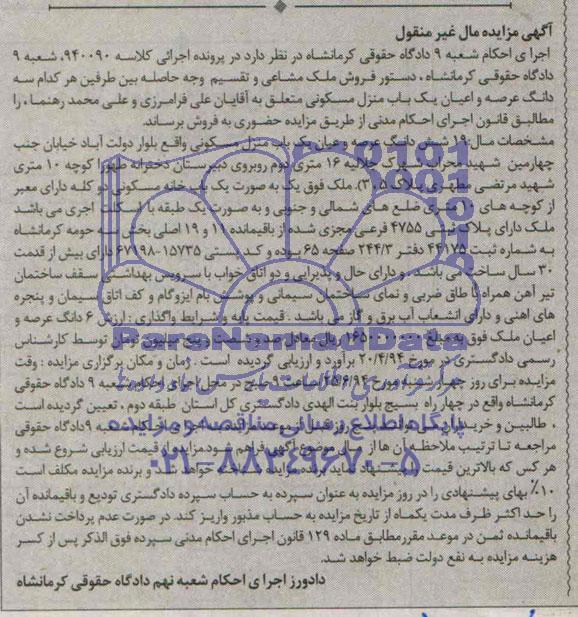 آگهی مزایده مال غیر منقول
اجرا ی احکام شعبه ۹ دادگاه حقوقی کرمانشاه در نظر دارد در پرونده اجرائی کلاسه ۹۴۰۰۹۰، شعبه ۹
دادگاه حقوقی کرمانشاه ، دستور فروش ملک مشاعی و تقسیم وجه حاصله بین طرفین هر کدام سه
دانگ عرصه و اعیان یک باب منزل مسکونی متعلق به آقایان علی فرامرزی و علی محمد رهنما ، را
مطالبق قانون اجرای احکام مدنی از طریق مزایده حضوری به فروش برساند.
مشخصات مال:۱۹ شش دانگ عرصه و عیان یک باب منزل مسکونی واقع بلوار دولت آباد خیابان جنب
چهارمین شهید محراب ۱۶ متری دوم روبروی دبیرستان دخترانه طهورا کوچه ۱۰ متری
شهید مرتضی مطهری پلاک ۳۰۵). ملک فوق یک به صورت یک باب خانه مسکونی دو کله دارای معبر
از کوچه های ۱۰ متری ضلع های شمالی و جنوبی و به صورت یک طبقه با اسکلت آجری می باشد
ملک دارای پلاک ثبتی ۴۷۵۵ فرعی مجزی شده از باقیمانده ۱۱ و ۱۹ اصلی بخش سه حومه کرمانشاه
به شماره ثبت ۴۴۱۷۵ دفتر ۲۴۴/۳ صفحه ۶۵ بوده و کد پستی ۱۵۷۳۵-۶۷۹۹۸ دارای بیش از قدمت
۳۰ سال ساخت می باشد . و دارای حال و پذیرایی و دو اتاق خواب با سرویس بهداشتی سقف ساختمان
تیر آهن همراه با طاق ضربی و نمای ساختمان سیمانی و پوشش بام ایزوگام و کف اتاق سیمان و پنجره
های اهنی و دارای انشعاب آب برق و گاز می باشد . قیمت پایه و شرایط واگذاری : ارزش ۶ دانگ عرصه و
اعیان ملک فوق به مبلغ ریال معادل صد و شصت و پنج میلیون تومان توسط کارشناس
رسمی دادگستری در مورخ ۲۰/۴/۹۴ برآورد و ارزیابی گردیده است . زمان و مکان برگزاری مزایده : وقت
مزایده برای روز چهارشنبه مورخ ساعت ۹ صبح در محل اجرای احکام شعبه ۹ دادگاه حقوقی
کرمانشاه واقع در چهار راه بسیج بلوار بنت الهدی دادگستری کل استان طبقه دوم ، تعیین گردیده است
. طالبین و خریداران شعبه ۹ دادگاه حقوقی
مراجعه تا ترتیب ملاحظه آن ها از مال موضوع آگهی فراهم شود.مزایده از قیمت ارزیابی شروع شده و
هر کس که بالاترین قیمت را پیشنهاد نماید برنده مزایده شناخته خواهد شد و برنده مزایده مکلف است
۱۰٪ بهای پیشنهادی را در روز مزایده به عنوان سپرده به حساب سپرده دادگستری تودیع و باقیمانده آن
را حد اکثر ظرف مدت یکماه از تاریخ مزایده به حساب مذبور واریز کند. در صورت عدم پرداخت نشدن
باقیمانده ثمن در موعد مقرر مطابق ماده ۱۲۹ قانون اجرای احکام مدنی سپرده فوق الذکر پس از کسر
هزینه مزایده به نفع دولت ضبط خواهد شد.
دادورز اجرا ی احکام شعبه نهم دادگاه حقوقی کرمانشاه
ParsNamadData
پایگاه اطلاع رسانی مناقصه و مزایده
۰۲۱-۸۸۳۴۹۶۷۰-۵